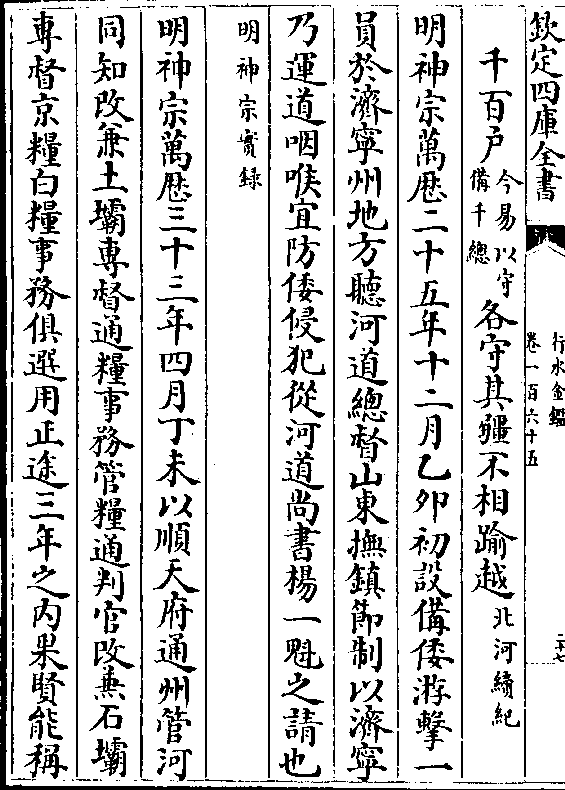 欽定四庫全書
行水金鑑
卷一百六十五
二十七
千百户今易以守備千總各守其疆不相踰越北河續紀
明神宗萬厯二十五年十二月乙卯初設備倭游擊一
員於濟寧州地方聽河道總督山東撫鎮節制以濟寧
乃運道咽喉宜防倭侵犯從河道尚書楊一魁之請也
明神宗實録
明神宗萬厯三十三年四月丁未以順天府通州管河
同知改兼土壩專督通糧事務管糧通判官改兼石壩
專督京糧白糧事務俱選用正途三年之内果賢能稱